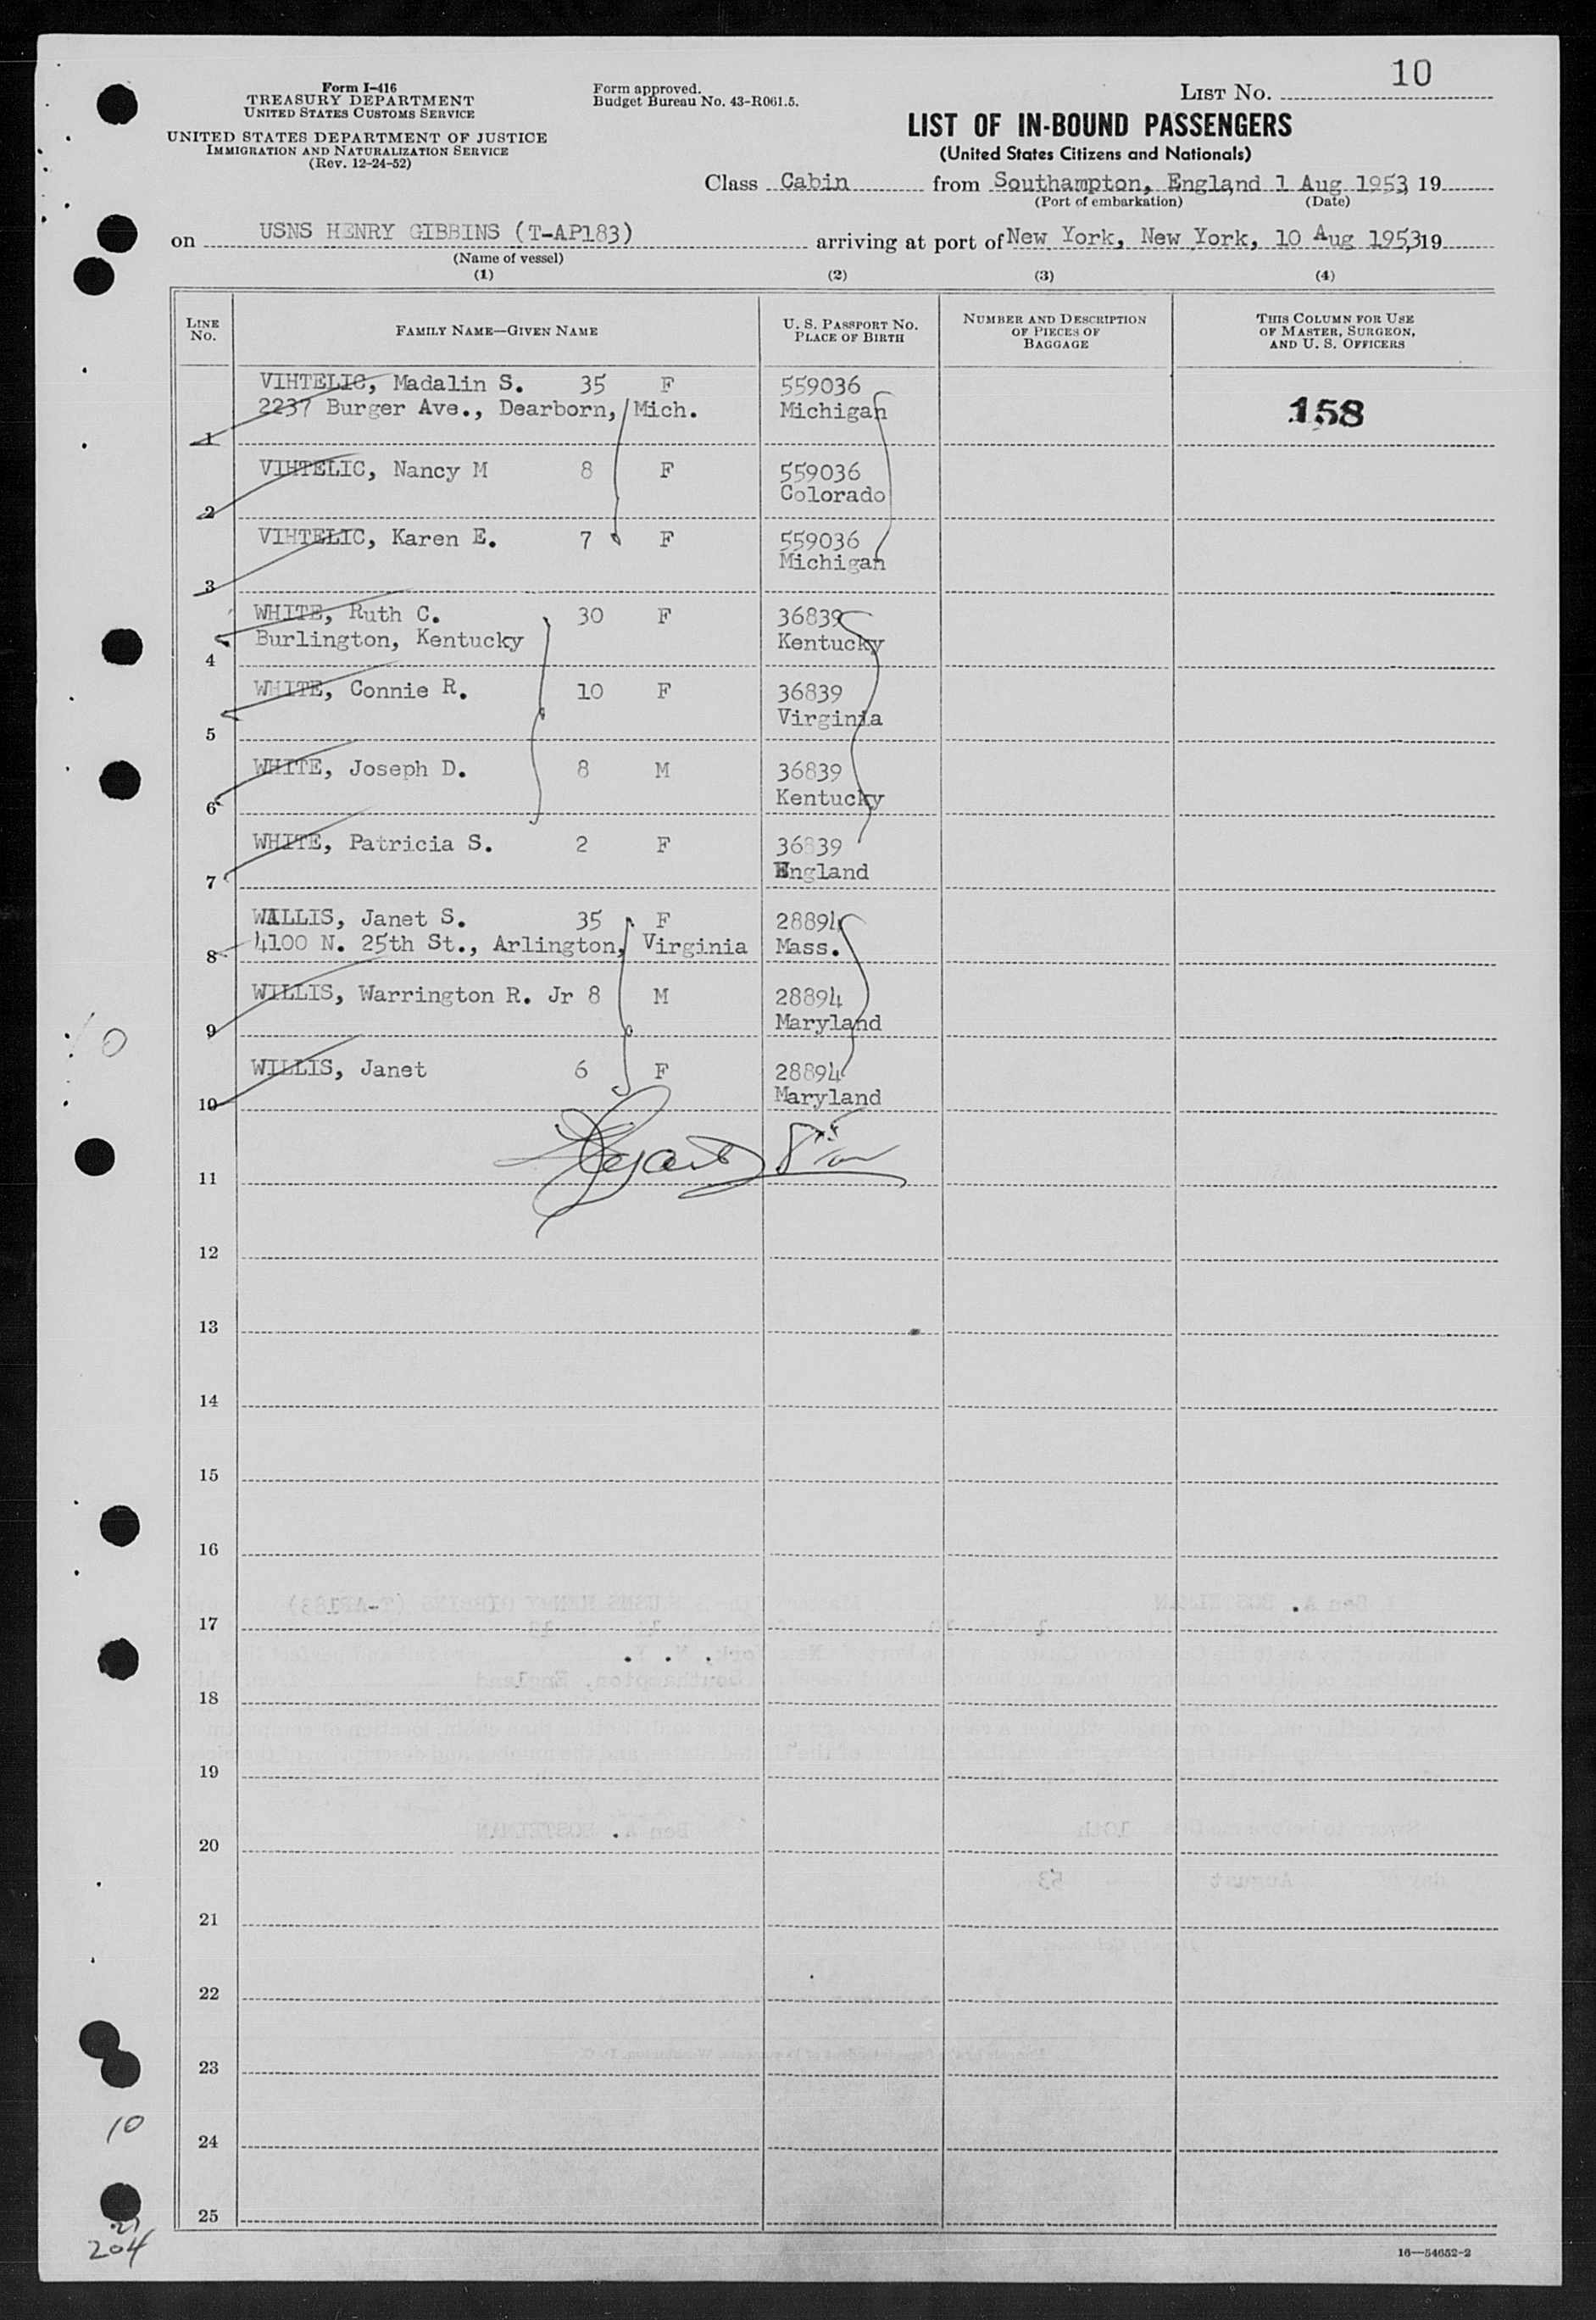 Form I-416
TREASURY DEPARTMENT
UNITED STATES CUSTOMS SERVICE
UNITED STATES DEPARTMENT OF JUSTICE
IMMIGRATION AND NATURALIZATION SERVICE
(Rev. 12-24-52)
Form approved.
Budget Bureau No. 43-R061.5.
LIST NO. 10
LIST OF IN-BOUND PASSENGERS
(United States Citizens and Nationals)
Class Cabin from Southampton, England 1 Aug 1953, 19
(Port of embarkation) (Date)
on USNS HENRY GIBBINS (T-AP183) arriving at port of New York, New York, 10 Aug 1953, 19
(Name of vessel)
(1) (2) (3) (4)
LINE NO.
FAMILY NAME—GIVEN NAME
U. S. PASSPORT NO.
PLACE OF BIRTH
NUMBER AND DESCRIPTION
OF PIECES OF
BAGGAGE
THIS COLUMN FOR USE
OF MASTER, SURGEON,
AND U. S. OFFICERS
VIHTELIC, Madalin S. 35 F 559036
2237 Burger Ave., Dearborn, Mich. Michigan 158
1
VIHTELIC, Nancy M 8 F 559036
Colorado
2
VIHTELIC, Karen E. 7 F 559036
Michigan
3
WHITE, Ruth C. 30 F 36839
Burlington, Kentucky Kentucky
4
WHITE, Connie R. 10 F 36839
Virginia
5
WHITE, Joseph D. 8 M 36839
Kentucky
6
WHITE, Patricia S. 2 F 36839
England
7
WILLIS, Janet S. 35 F 28894
4100 N. 25th St., Arlington, Virginia Mass.
8
WILLIS, Warrington R. Jr 8 M 28894
Maryland
9
WILLIS, Janet 6 F 28894
Maryland
10
11
12
13
14
15
16
17
18
19
20
21
22
23
24
25
10
10
21
204
16—54652-2